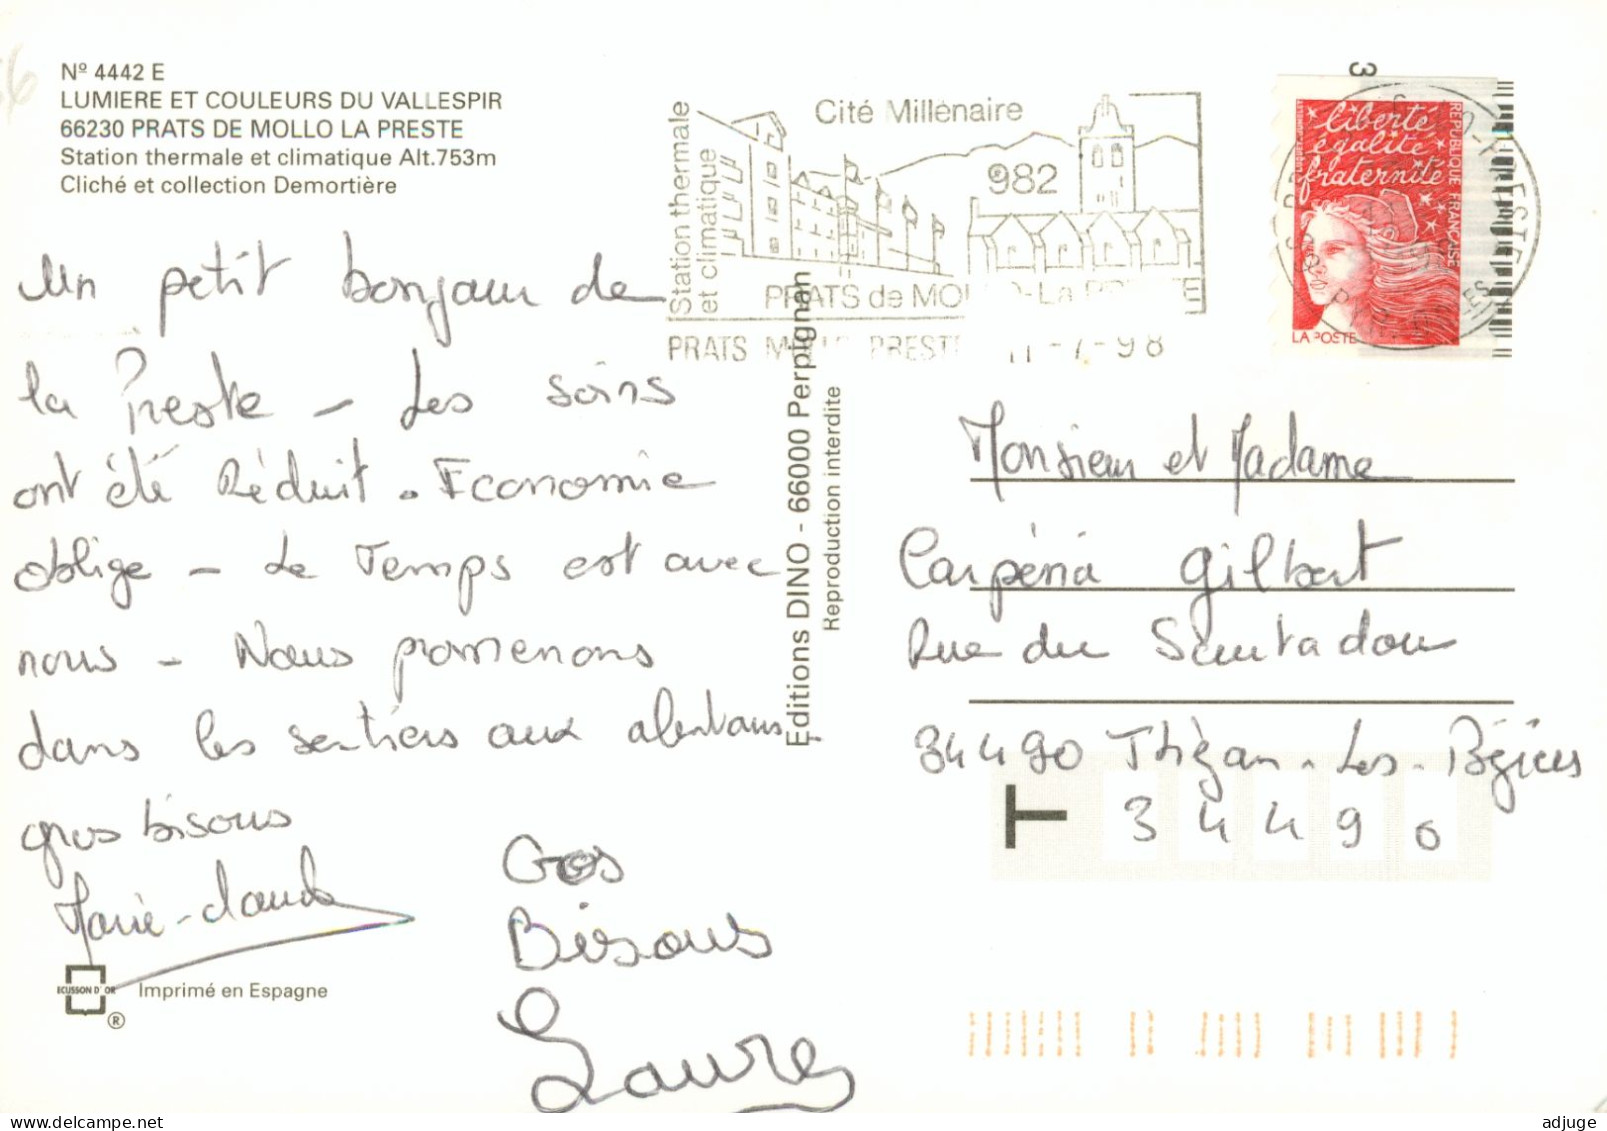 Nº 4442 E
LUMIERE ET COULEURS DU VALLESPIR
66230 PRATS DE MOLLO LA PRESTE
Station thermale et climatique Alt.753m
Cliché et collection Demortière
Un petit bonjour de
la Preste - Les soins
ont été Réduit. Economie
oblige - Le Temps est avec
nous - Nous promenons
dans les sentiers aux alentours
gros bisous
Marie-claude
Gros
Bisous
Laure
ECUSSON D'OR
®
Imprimé en Espagne
Editions DINO - 66000 Perpignan
Reproduction interdite
Station thermale
et climatique
Cité Millénaire
982
PRATS de MO -La PRESTE
PRATS MOLLO PRESTE 11-7-98
3
liberté
égalité
fraternité
REPUBLIQUE FRANÇAISE
LA POSTE
Monsieur et Madame
Carpéna Gilbert
Rue du
34490 Thézan-Les-Béziers
T
34490
adjuge